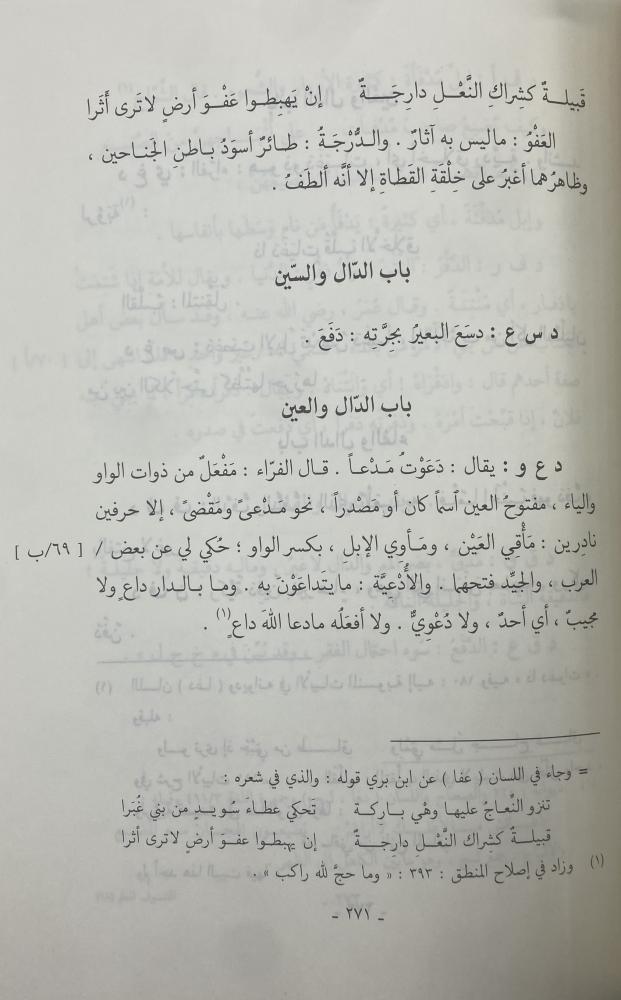 قَبيلــةٌ كشِراكِ النَّعْـلِ دارِجَــةٌ إنْ يَهبِطـوا عَفْـوَ أرضٍ لاتَرى أَثَرا
العَفْوُ : ماليس به آثارٌ . والـدُّرْجَـةُ : طـائرٌ أسوَدُ بـاطنِ الجَناحين ،
وظاهرُهما أغبَرُ على خِلْقَةِ القَطاةِ إلا أنَّه ألطَفُ .
باب الدّال والسّين
د س ع : دسَعَ البعيرُ بجِرَّتِه : دَفَعَ .
باب الدّال والعين
د ع و : يقال : دَعَوْتُ مَـدْعـاً . قـال الفرّاء : مَفْعَلٌ من ذوات الواو
والياء ، مَفتوحُ العين اَسماً كان أو مَصْدراً ، نحو مَدْعىً ومَقْضىً ، إلا حرفين
نادِرين : مَأْقِي العَيْن ، ومَـأوِي الإبلِ ، بكسر الواو ؛ حُكي لي عن بعض / [ ٦٩/ب ]
العرب ، والجيِّد فتحهما . والأُدْعيَّة : ما يَتَداعَوْنَ به . ومـا بـالـدار داع ٍولا
مجيبٌ ، أي أحدٌ ، ولا دُعْوِيٌّ . ولا أفعَلُه مادعا اللهَ داع ٍ(١) .
= وجاء في اللسان ( عفا ) عن ابن بري قوله : والذي في شعره :
تنزو النِّعاجُ عليها وهْي بـاركـة تَحكي عطـاءَ سُويـدٍ من بني غُبَرا
قبيلـةٌ كشِراك النَّعْـلِ دارجـةٌ إن يهبطوا عفـوَ أرضٍ لاترى أثرا
(١) وزاد في إصلاح المنطق : ٣٩٣ : « وما حجَّ لله راكب » .
ـ ٢٧١ ـ